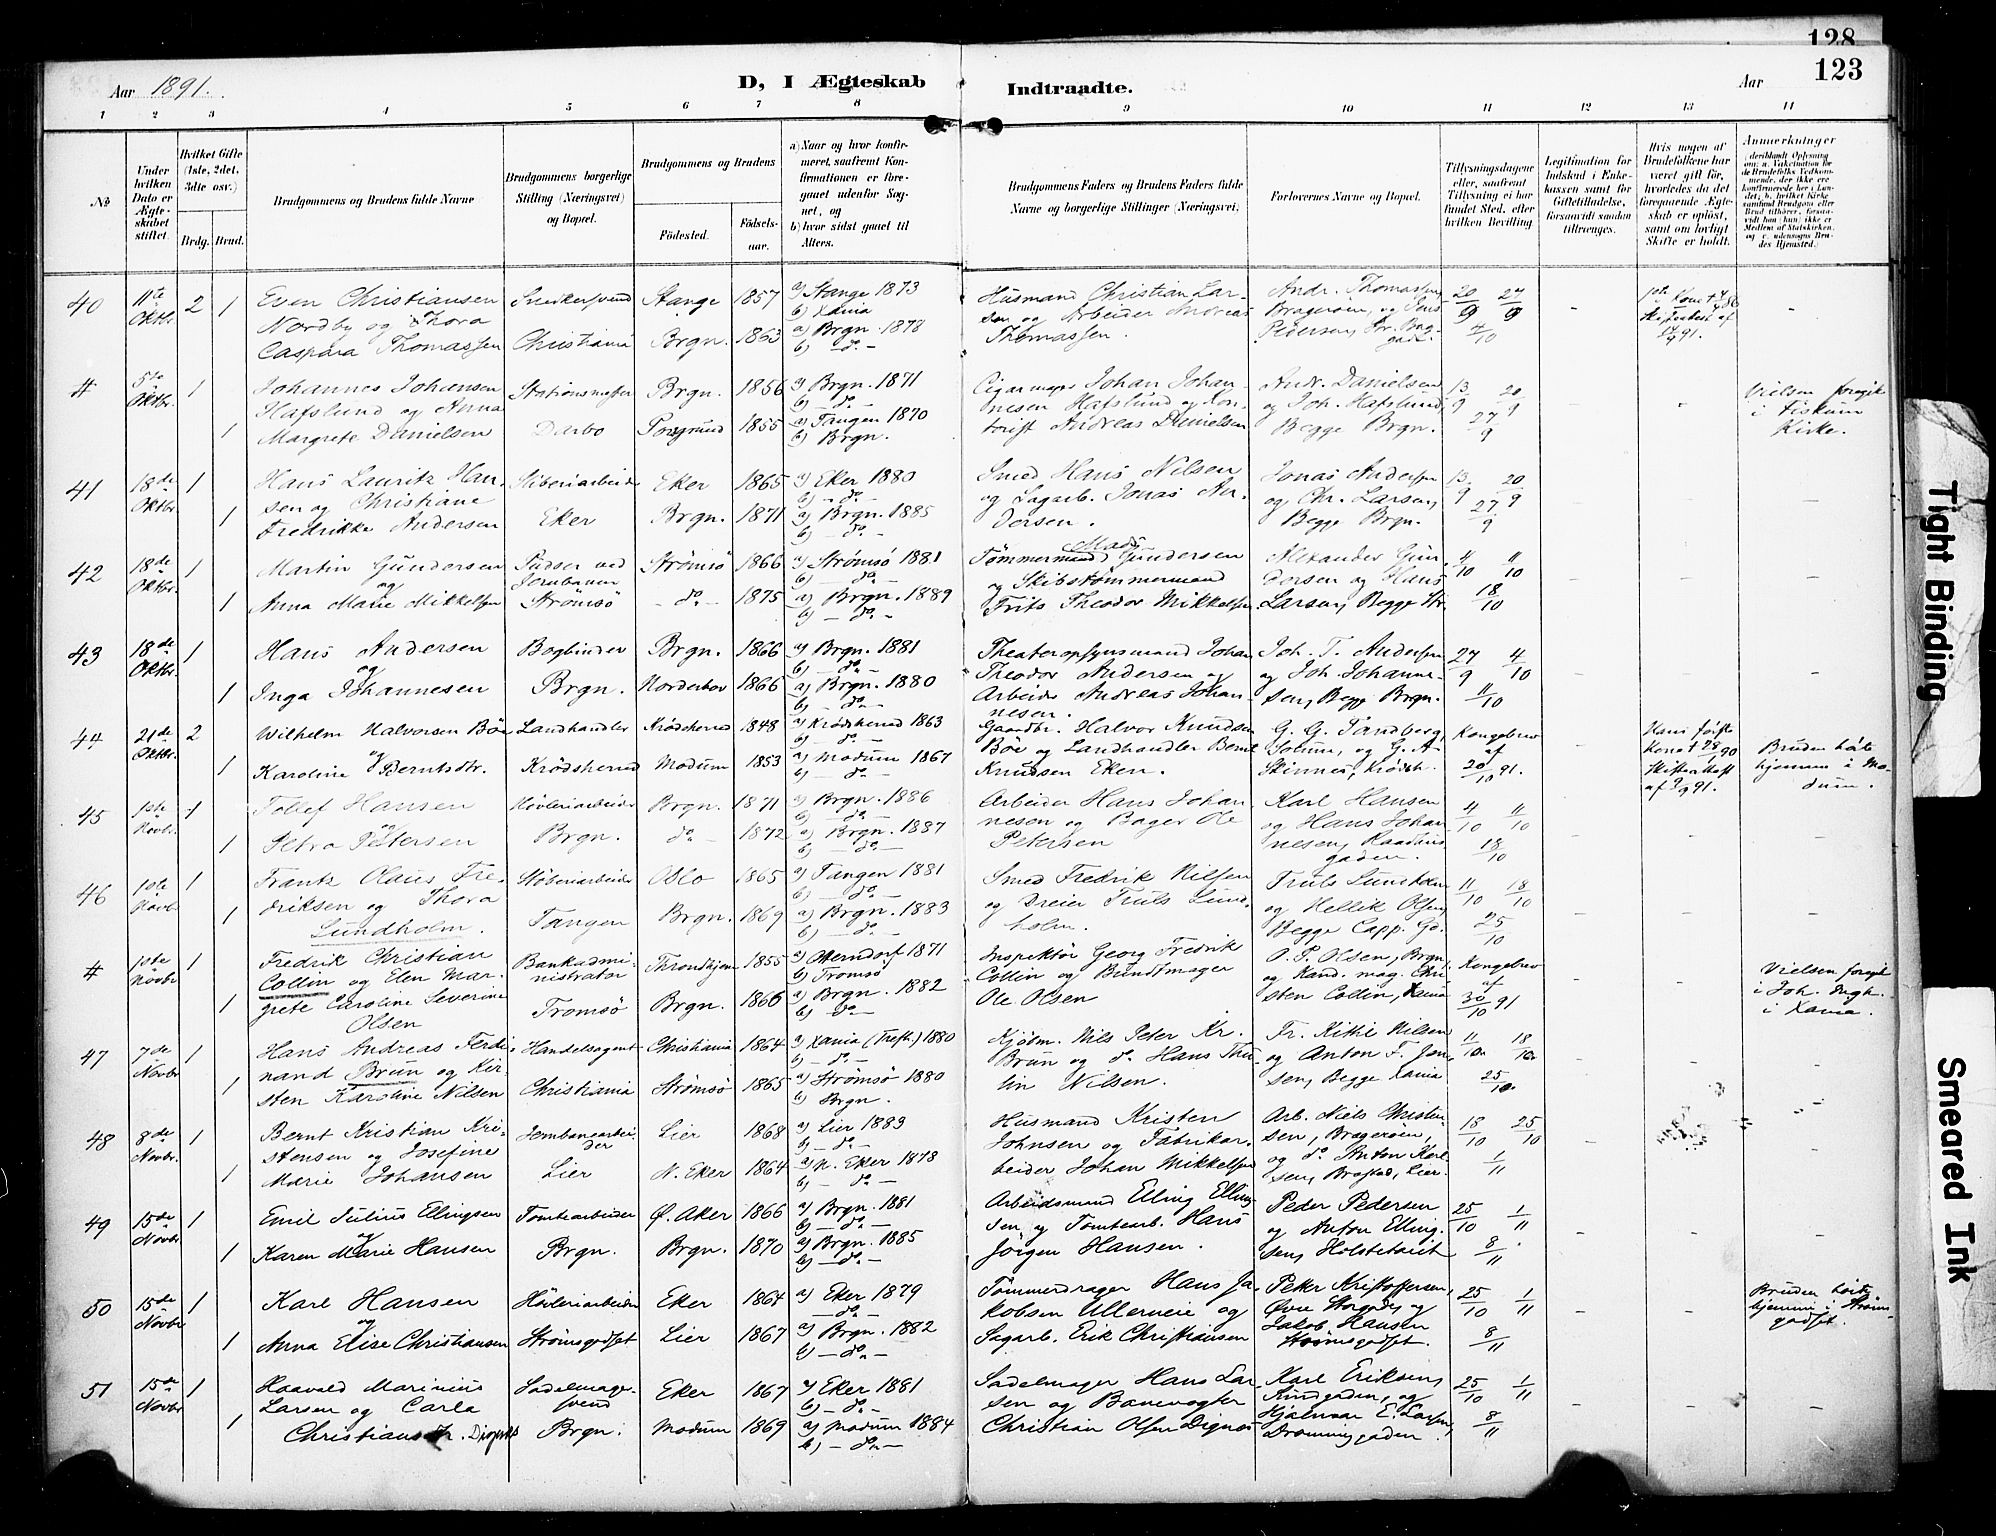 128
123
Aar 1891.
D, I Ægteskab
Indtraadte.
Aar
1 2 3 4 5 6 7 8 9 10 11 12 13 14
No
Under hvilken Dato er Ægteskabet stiftet.
Hvilket Gifte (1ste, 2det, 3die osv.)
Brdg. Brud.
Brudgommens og Brudens fulde Navne
Brudgommens borgerlige Stilling (Næringsvei) og Bopæl.
Brudgommens og Brudens
Fødested.
Fødselsaar.
a) Naar og hvor konfirmeret, saafremt Konfirmationen er foregaaet udenfor Sognet, og
b) hvor sidst gaaet til Alters.
Brudgommens Faders og Brudens Faders fulde Navne og borgerlige Stillinger (Næringsvei)
Forlovernes Navne og Bopæl.
Tillysningsdagene eller, saafremt Tillysning ei har fundet Sted, efter hvilken Bevilling
Legitimation for Indskud i Enkekassen samt for Giftetilladelse, forsaavidt saadan tiltrænges.
Hvis nogen af Brudefolkene har været gift før, hvorledes da det foregaaende Ægteskab er opløst, samt om lovligt Skifte er holdt.
Anmerkninger
40 11te Oktbr. 2 1
Even Christiansen
Nordby og Thora
Caspara Thomassen
Snedkersvend
Christiania
Stange 1857
Brgn. 1863
a) Stange 1873
b) Xania
a) Brgn. 1878
b) - do -
Husmand Christian Lar-
sen og Arbeider Andreas
Thomassen.
Andr. Thomassen,
Bragerøen, og Jens
Pedersen,
20/9 27/9
4/10
# 5te Oktbr. 1
1
Johannes Johansen
Hafslund og Anna
Margrete Danielsen
Stationsmester
Darbo
Brgn. 1856
Porsgrund 1855
a) Brgn. 1871
b) - do -
a) Tangen 1870
b) Brgn.
Cigarmager Johan Johan-
nesen Hafslund og Kon-
torist Andreas Danielsen
Andr. Danielsen
og Joh. Hafslund,
Begge Brgn.
13/9 20/9
27/9
Vielsen foregik
i Fiskum
Kirke.
41 18de Oktbr. 1
1
Hans Lauritz Han-
sen og Christiane
Fredrikke Andersen
Sliberiarbeider
Eker
Eker 1865
Brgn. 1871
a) Eker 1880
b) - do -
a) Brgn. 1885
b) - do -
Smed Hans Nilsen
og Sagarb. Jonas An-
dersen.
Jonas Andersen
og Chr. Larsen,
Begge Brgn.
13/9 20/9
27/9
42 18de Oktbr. 1
1
Martin Gundersen
og
Anna Marie Mikkelsen
Pudser ved
Jernbanen
Strømsø
Strømsø 1866
- do - 1875
a) Strømsø 1881
b) - do -
a) Brgn. 1889
b) - do -
Tømmermand Mads Gundersen
og Skibstømmermand
Frits Theodor Mikkelsen
Alexander Gun-
dersen og Hans
Larsen, Begge Str.
4/10 11/10
18/10
43 18de Oktbr. 1
1
Hans Andersen
og
Inga Johannesen
Bogbinder
Brgn.
Brgn. 1866
Norderhov 1866
a) Brgn. 1881
b) - do -
a) Brgn. 1880
b) - do -
Theateropsynsmand Johan
Theodor Andersen og
Arbeider Andreas Johan-
nesen.
Joh. T. Andersen
og Joh. Johanne-
sen, Begge Brgn.
27/9 4/10
11/10
44 21de Oktbr. 2
1
Wilhelm Halvorsen Bøe
og
Karoline Berntsdtr.
Landhandler
Krødsherred
Krødsherred 1848
Modum 1853
a) Krødsherred 1863
b) - do -
a) Modum 1867
b) - do -
Gaardbr. Halvor Knudsen
Bøe og Landhandler Bernt
Knudsen Eken.
G. G. Sandberg,
og G. A.
Skinnes, Krødsh.
Kongebrev
af
20/10 91.
Hans første
Kone † 28/ 90
Bruden hørte
hjemme i Mo-
dum.
45 1ste Novbr. 1
1
Tollef Hansen
og
Petra Petersen
Høvleriarbeider
Brgn.
Brgn. 1871
do - 1872
a) Brgn. 1886
b) - do -
a) Brgn. 1887
b) - do -
Arbeider Hans Johan-
nesen og Bager Ole
Petersen
Karl Hansen
og Hans Johan-
nesen,
gaden.
4/10 11/10
18/10
46 1ste Novbr. 1
1
Frantz Olaus Fre-
driksen og Thora
Lundholm.
Støberiarbeider
Tangen
Oslo 1865
Brgn. 1869
a) Tangen 1881
b) - do -
a) Brgn. 1883
b) - do -
Smed Fredrik Nilsen
og Dreier Truls Lund-
holm.
Truls Lundholm
og Hellik Olsen,
Begge Capp. Gd.
11/10 18/10
25/10
# 1ste Novbr. 1
1
Fredrik Christian
Collin og Elen Mar-
grete Caroline Severine
Olsen
Bankadmi-
nistrator
Tromsø
Throndhjem 1855
Brgn. 1866
a) Oterndorf 1871
b) Tromsø
a) Brgn. 1882
b) - do -
Inspektør Georg Fredrik
Collin og Bundtmager
Ole Olsen
O. P. Olsen, Brgn,
og Kand. mag. Chri-
sten Collin, Xania
Kongebrev
af
30/10 91
Vielsen foregik
i Joh.
i Xania.
47 7de Novbr. 1
1
Hans Andreas Ferdi-
nand Brun og Kir-
sten Karoline Nilsen
Handelsagent
Christiania
Christiania 1864
Strømsø 1865
a) Xania (Trefk.) 1880
b) - do -
a) Strømsø 1880
b) Brgn.
Kjøbm. Nils Peter Kr.
Brun og do. Hans Thu-
lin Nilsen.
Fr. Kithi Nilsen
og Anton F. Jen-
sen, Begge Xania
11/10 18/10
25/10
48 8de Novbr. 1
1
Bernt Kristian Kri-
stensen og Josefine
Marie Johansen
Jernbanearbei-
der
Lier
Lier 1868
N. Eker 1864
a) Lier 1883
b) - do -
a) N. Eker 1878
b) - do -
Husmand Kristen
Johnsen og Fabrikar-
beider Johan Mikkelsen
Arb. Niels Christen-
sen, Bragerøen,
og do. Anton Karl-
sen, Brastad, Lier.
18/10 25/10
1/11
49 15de Novbr. 1
1
Emil Julius Ellingsen
og
Karen Marie Hansen
Tomtearbeider
Brgn.
Ø. Aker 1866
Brgn. 1870
a) Brgn. 1881
b) - do -
a) Brgn. 1885
b) - do -
Arbeidsmand Elling Elling-
sen og Tomtearb. Hans
Jørgen Hansen.
Peder Pedersen
og Anton Elling-
sen,
25/10 1/11
8/11
50 15de Novbr. 1
1
Karl Hansen
og
Anna Elise Christiansen
Høvleriarbeider
Strømsgodset
Eker 1864
Lier 1867
a) Eker 1879
b) - do -
a) Brgn. 1882
b) - do -
Tømmerdrager Hans Ja-
kobsen Ullerneie og
Sagarb. Erik Christiansen
Peter Kristoffersen,
Øvre Storgade, og
Jakob Hansen
Strømsgodset.
25/10 1/11
8/11
Bruden hørte
hjemme i Strøms-
godset.
51 15de Novbr. 1
1
Haavald Marinius
Larsen og Carla
Christiansdtr.
Sadelmager-
svend
Brgn.
Eker 1867
Modum 1869
a) Eker 1881
b) - do -
a) Modum 1884
b) - do -
Sadelmager Hans Lar-
sen og Banevogter
Christian Olsen Dignæs
Karl Eriksen,
og
Hjalmar E. Larsen,
Dronninggaden.
25/10 1/11
8/11
Tight Binding
Smeared Ink